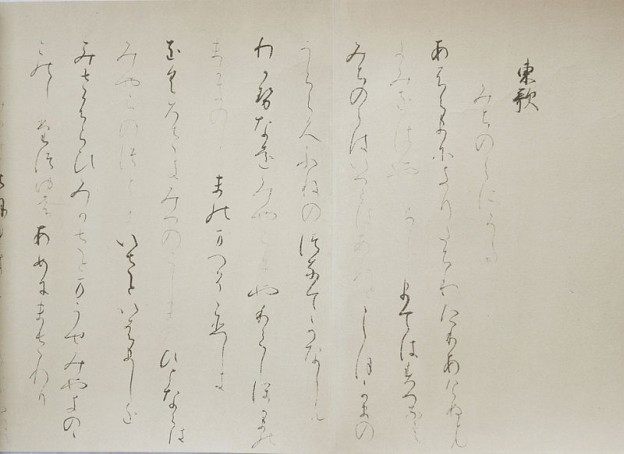 東歌
みちのくにうた
あふくまにきりたちわたりあけぬとも
きみをはやらしまてはすへなし
みちのくはいつくはあれとしほかまの
うらこくふねのつなてかなしも
わかせなをみやこにやりてしほかまの
まかきのまつそこひしき
をくろさきみつのこしまのひとならは
みやこのつとにいさといはましを
みさふらひみかさとまうせみやきのゝ
このしたつゆはあめにまされり